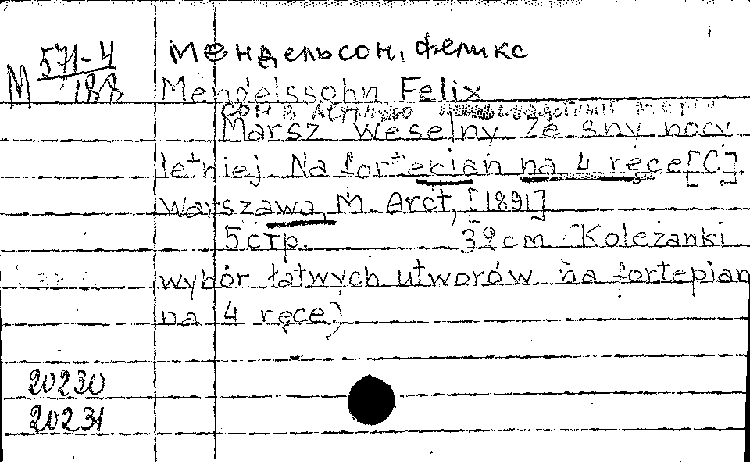 М 571-4
188
Мендельсон, Феликс
Mendelssohn Felix
Сон в летнюю
Marsz weselny ze sny nocy
letniej. Na fortekian na 4 ręce [C].
Warszawa, M. Arct, [1891]
5 стр. 32 cm (Koleżanki
wybór łatwych utworów na fortepian
na 4 ręce)
20230
20231